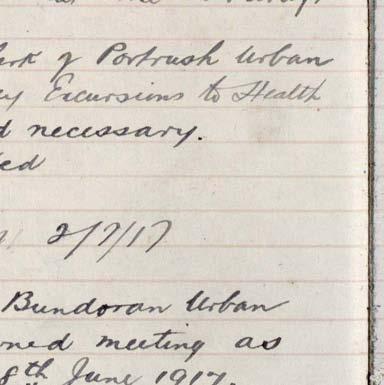 erk of Portrush Urban
ey Excursions to Health
d necessary.
ed
2/7/17
Bundoran Urban
ned meeting as
8th June 1917.